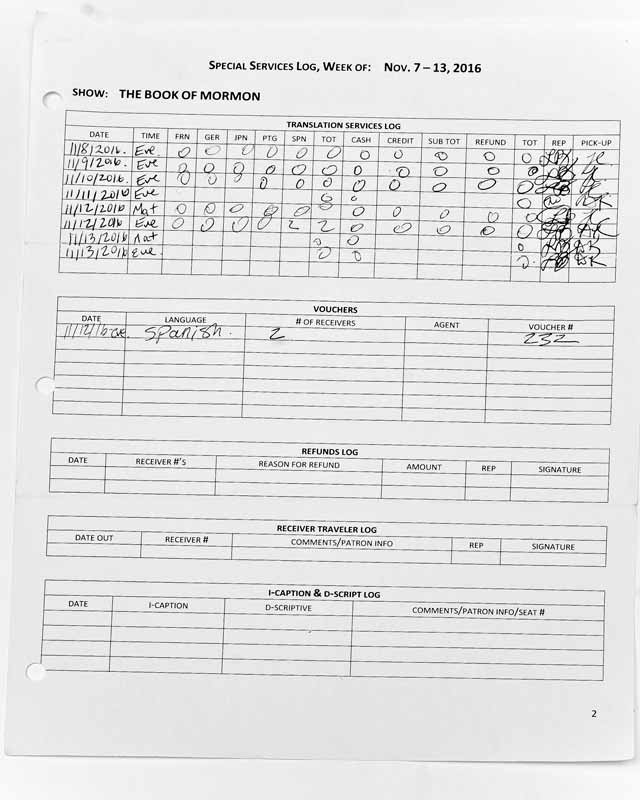 SPECIAL SERVICES LOG, WEEK OF: NOV. 7 – 13, 2016
SHOW: THE BOOK OF MORMON
TRANSLATION SERVICES LOG
DATE TIME FRN GER JPN PTG SPN TOT CASH CREDIT SUB TOT REFUND TOT REP PICK-UP
11/8/2016. Eve. 0 0 0 0 0 0 0 0 0 0 0
11/9/2016. Eve 0 0 0 0 0 0 0 0 0 0 0
11/10/2016. Eve 0 0 0 0 0 0 0 0 0 0 0
11/11/2016 Eve 0 0 0
11/12/2016 Mat 0 0 0 0 0 0 0 0 0 0 0
11/12/2016 Eve 0 0 0 0 2 2 0 0 0 0 0
11/13/2016 Mat 0 0 0
11/13/2016 Eve. 0 0 0
VOUCHERS
DATE LANGUAGE # OF RECEIVERS AGENT VOUCHER #
11/12/16 eve. Spanish. 2 232
REFUNDS LOG
DATE RECEIVER #'S REASON FOR REFUND AMOUNT REP SIGNATURE
RECEIVER TRAVELER LOG
DATE OUT RECEIVER # COMMENTS/PATRON INFO REP SIGNATURE
I-CAPTION & D-SCRIPT LOG
DATE I-CAPTION D-SCRIPTIVE COMMENTS/PATRON INFO/SEAT #
2